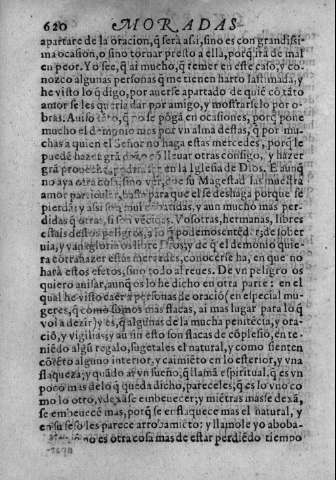 620 MORADAS
apartare de la oracion, q̃ sera assi, sino es con grandissi-
ma ocasion, o sino tornar presto a ella, porq̃ irà de mal
en peor. Yo see, q̃ ai mucho, q̃ temer en este caso, y co
nozco algunas personas q̃ me tienen harto lastimada, y
he visto lo q̃ digo, por auerse apartado de quiē cō tāto
amor se les queria dar por amigo, y mostrarselo por o-
bras. Auiso tāto, q̃ no se pōgā en ocasiones, porq̃ pone
mucho el demonio mas por vn alma destas, q̃ por mu-
chas a quien el Señor no haga estas mercedes, porq̃ le
puedē hazer grā daño cō lleuar otras consigo, y hazer
grā prouecho en la Iglesia de Dios. E aunq̃
no aya otra cosa, sino ver, que su Magestad las muestra
amor particular, basta para que el se deshaga porque se
pierdā; y assi son mui cōbatidas, y aun mucho mas per-
didas q̃ otras, si son vēcidas. Vosotras, hermanas, libres
estais destos peligros, a lo q̃ podemos entēder; de sober
uia, y vanagloria os libre Dios; y de q̃ el demonio quie-
ra cōtrahazer estas mercedes, conocerse ha, en que no
harà estos efetos, sino todo al reues. De vn peligro os
quiero auisar, aunq̃ os lo he dicho en otra parte: en el
qual he visto caer a personas de oraciō (en especial mu-
geres, q̃ como somos mas flacas, ai mas lugar para lo q̃
voi a dezir) y es, q̃ algunas de la mucha penitēcia, y ora-
ciō, y vigilias, y aū sin esto son flacas de cōplesiō, en te-
niēdo algū regalo, sugetales el natural, y como sienten
cōtēto alguno interior, y caimiēto en lo esterior, y vna
flaqueza; y quādo ai vn sueño, q̃ llamā espiritual, q̃ es vn
poco mas de lo q̃ queda dicho, pareceles, q̃ es lo vno co
mo lo otro, y dexāse embeuecer; y miētras mas se dexā,
se embeuecē mas, porq̃ se enflaquece mas el natural, y
en su seso les parece arrobamiēto; y llamole yo aboba-
no es otra cosa mas de estar perdiēdo tiempo